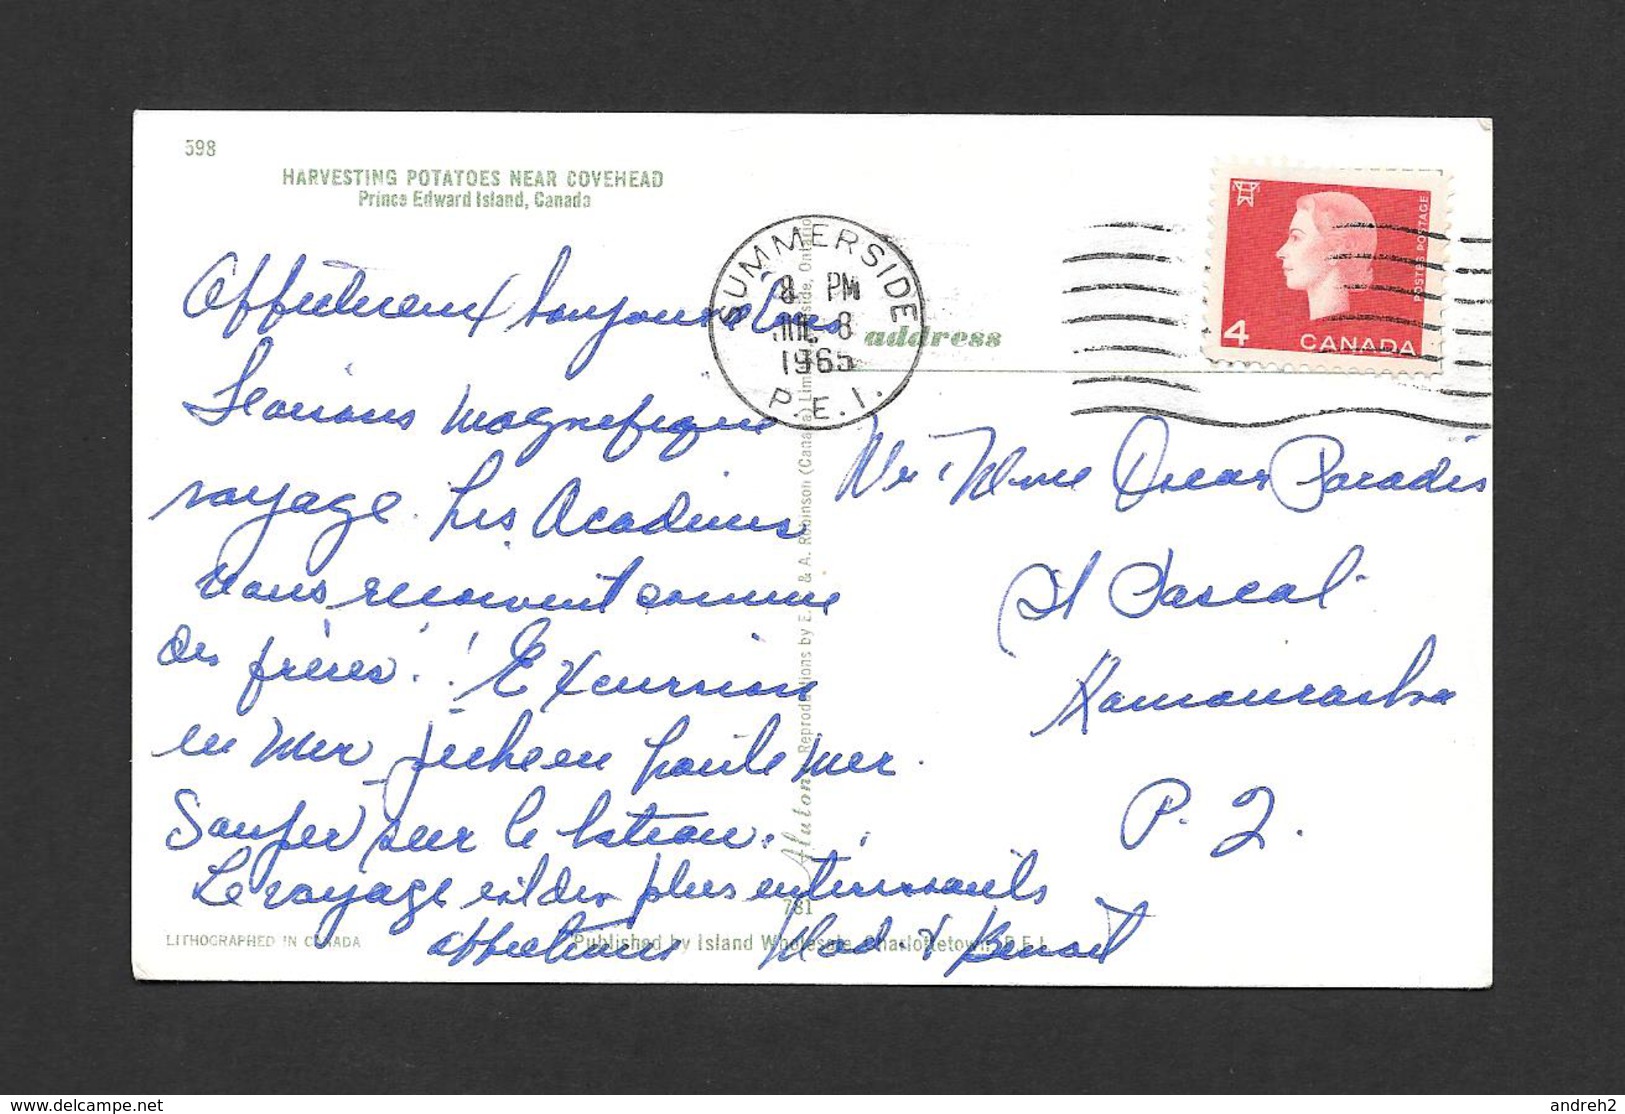 598
HARVESTING POTATOES NEAR COVEHEAD
Prince Edward Island, Canada
Affectueux bonjour
Faisons magnifique
voyage. Les Acadiens
nous reçoivent comme
des frères! ! Excursion
en mer pêche en haute mer.
Souper sur le bateau.
Le voyage est des plus intéressants
affections Mad. & Benoit
LITHOGRAPHED IN CANADA
Published by Island Wholesale, Charlottetown, P.E.I.
781
Reproductions by E. & A. Robinson (Canada) Limited, Leaside, Ontario
SUMMERSIDE
8 PM
8
1965
P.E.I.
address
POSTES POSTAGE
4 CANADA
Mr. Mme Oscar Paradis
St Pascal
Kamouraska
P. Q.
delcampe.net
andreh2